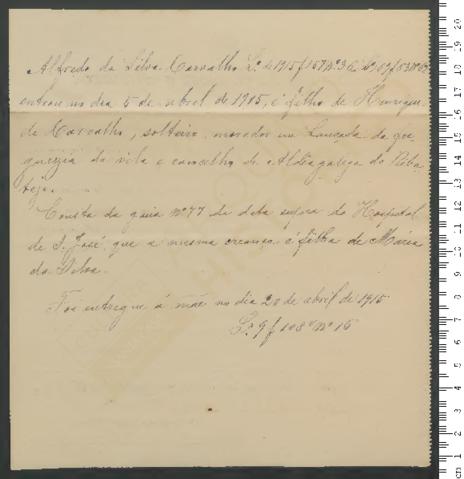 Alfredo da Silva Carvalho L.º de 1915 f 157 nº 3
entrou no dia 5 de abril de 1915, é filho de Henrique
de Carvalho, solteiro, morador na Lançada da fre-
guezia da vila e concelho de Aldeagalega do Riba-
tejo.
Consta da guia nº 77 de data supra do Hospital
de S. José, que a mesma creança é filha de Maria
da Silva.
Foi entregue á mãe no dia 20 de abril de 1915
L.º 9 f 108 v nº 15
cm 1 2 3 4 5 6 7 8 9 10 11 12 13 14 15 16 17 18 19 20